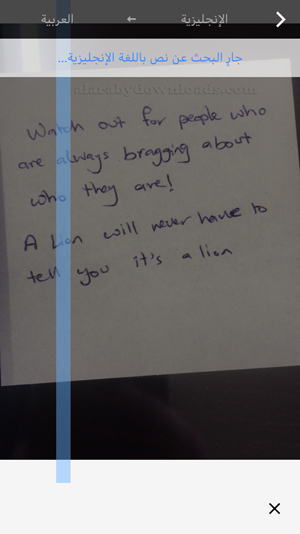 العربية ← الإنجليزية
جارٍ البحث عن نص باللغة الإنجليزية...
alarabydownloads.com
Watch out for people who
are always bragging about
who they are!
A Lion will never have to
tell you it's a lion